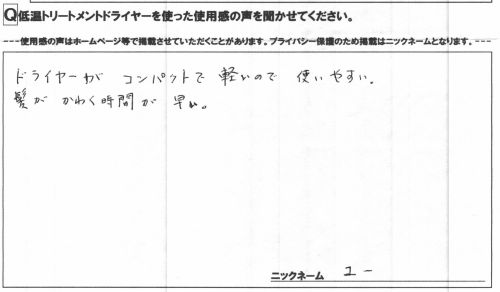 Q低温トリートメントドライヤーを使った使用感の声を聞かせてください。
---使用感の声はホームページ等で掲載させていただくことがあります。プライバシー保護のため掲載はニックネームとなります。---
ドライヤーが コンパクトで 軽いので 使いやすい。
髪が かわく時間が 早い。
ニックネーム ユー